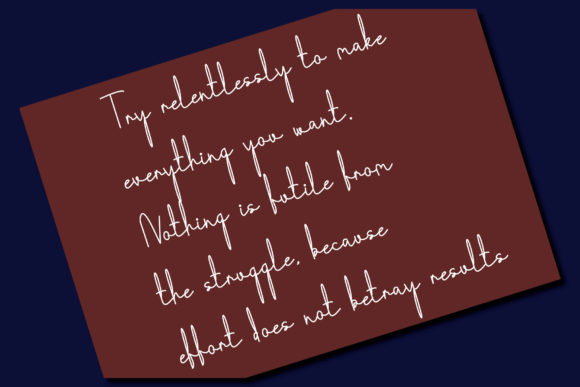 Try relentlessly to make
everything you want.
Nothing is futile from
the struggle, because
effort does not betray results